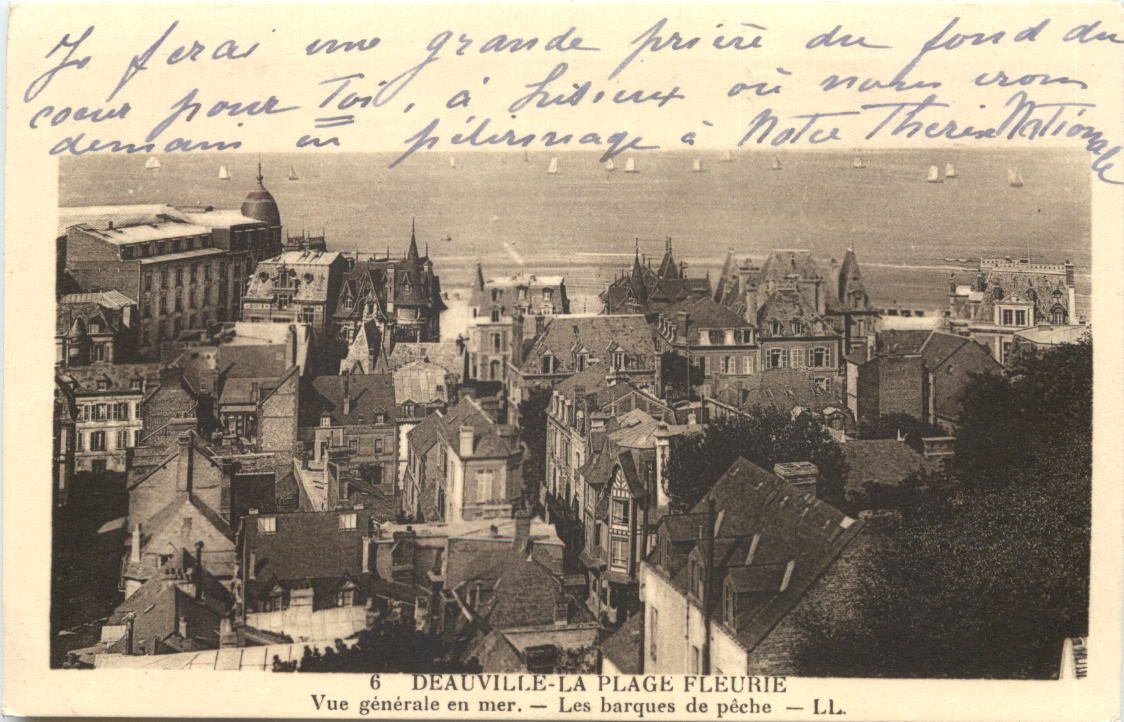 Je ferai une grande prière du fond du
coeur pour Toi, à Lisieux où nous irons
demain en pélerinage à Notre Thérèse Nationale
6 DEAUVILLE-LA PLAGE FLEURIE
Vue générale en mer. — Les barques de pêche — LL.